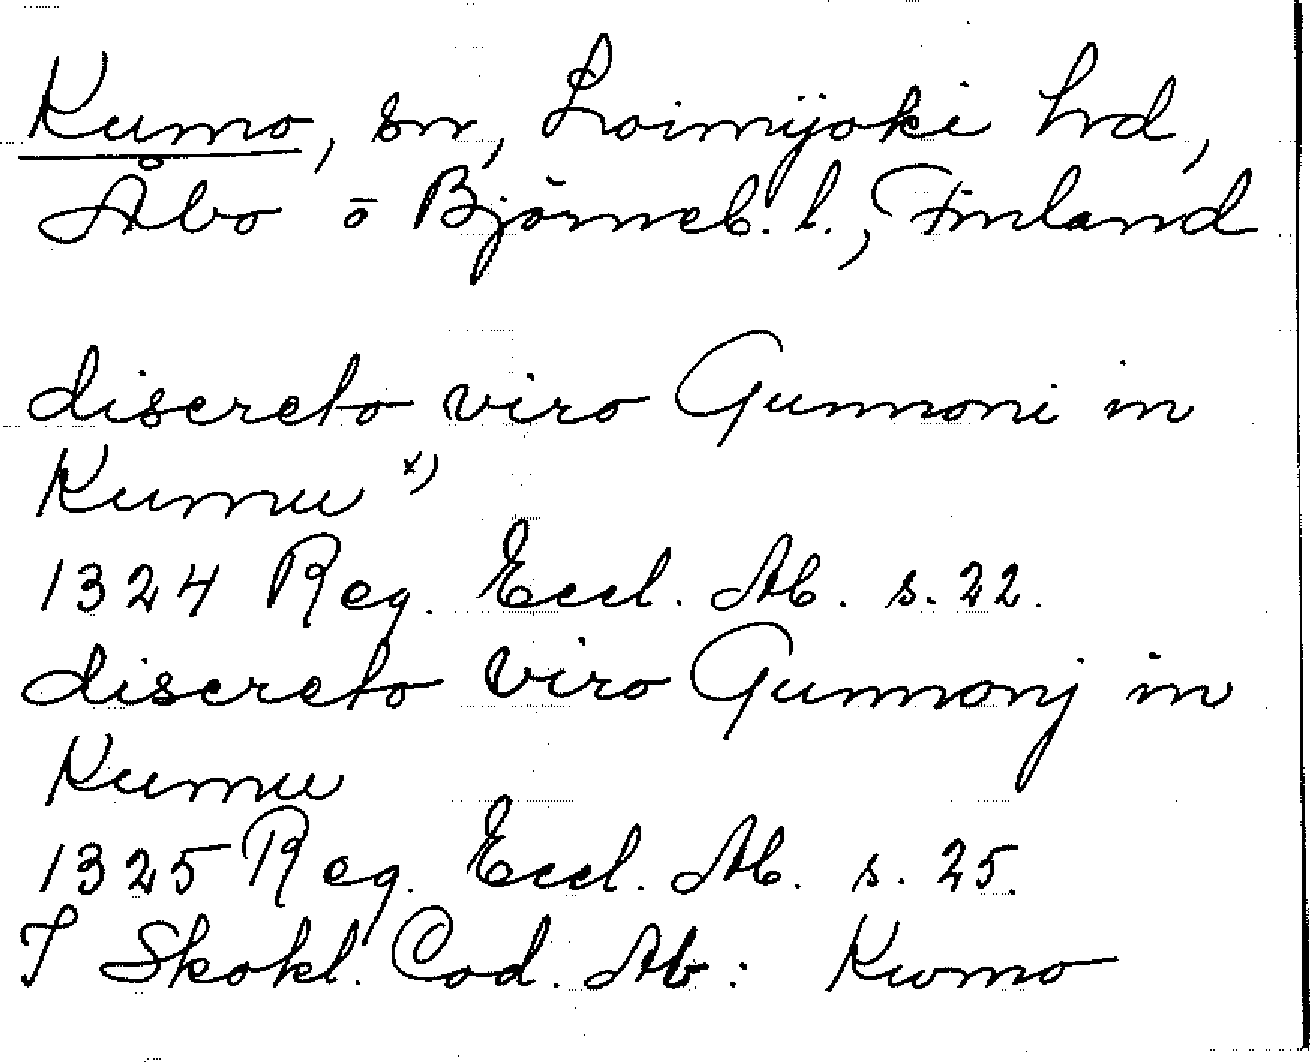 Kumo, sn, Loimijoki hd,
Åbo o Björneb. l., Finland
discreto viro Gunnoni in
Kumu x)
1324 Reg. Eccl. Ab. s. 22.
discreto viro Gunnonj in
Kumu
1325 Reg. Eccl. Ab. s. 25.
I Skokl. Cod. Ab: Kwmo